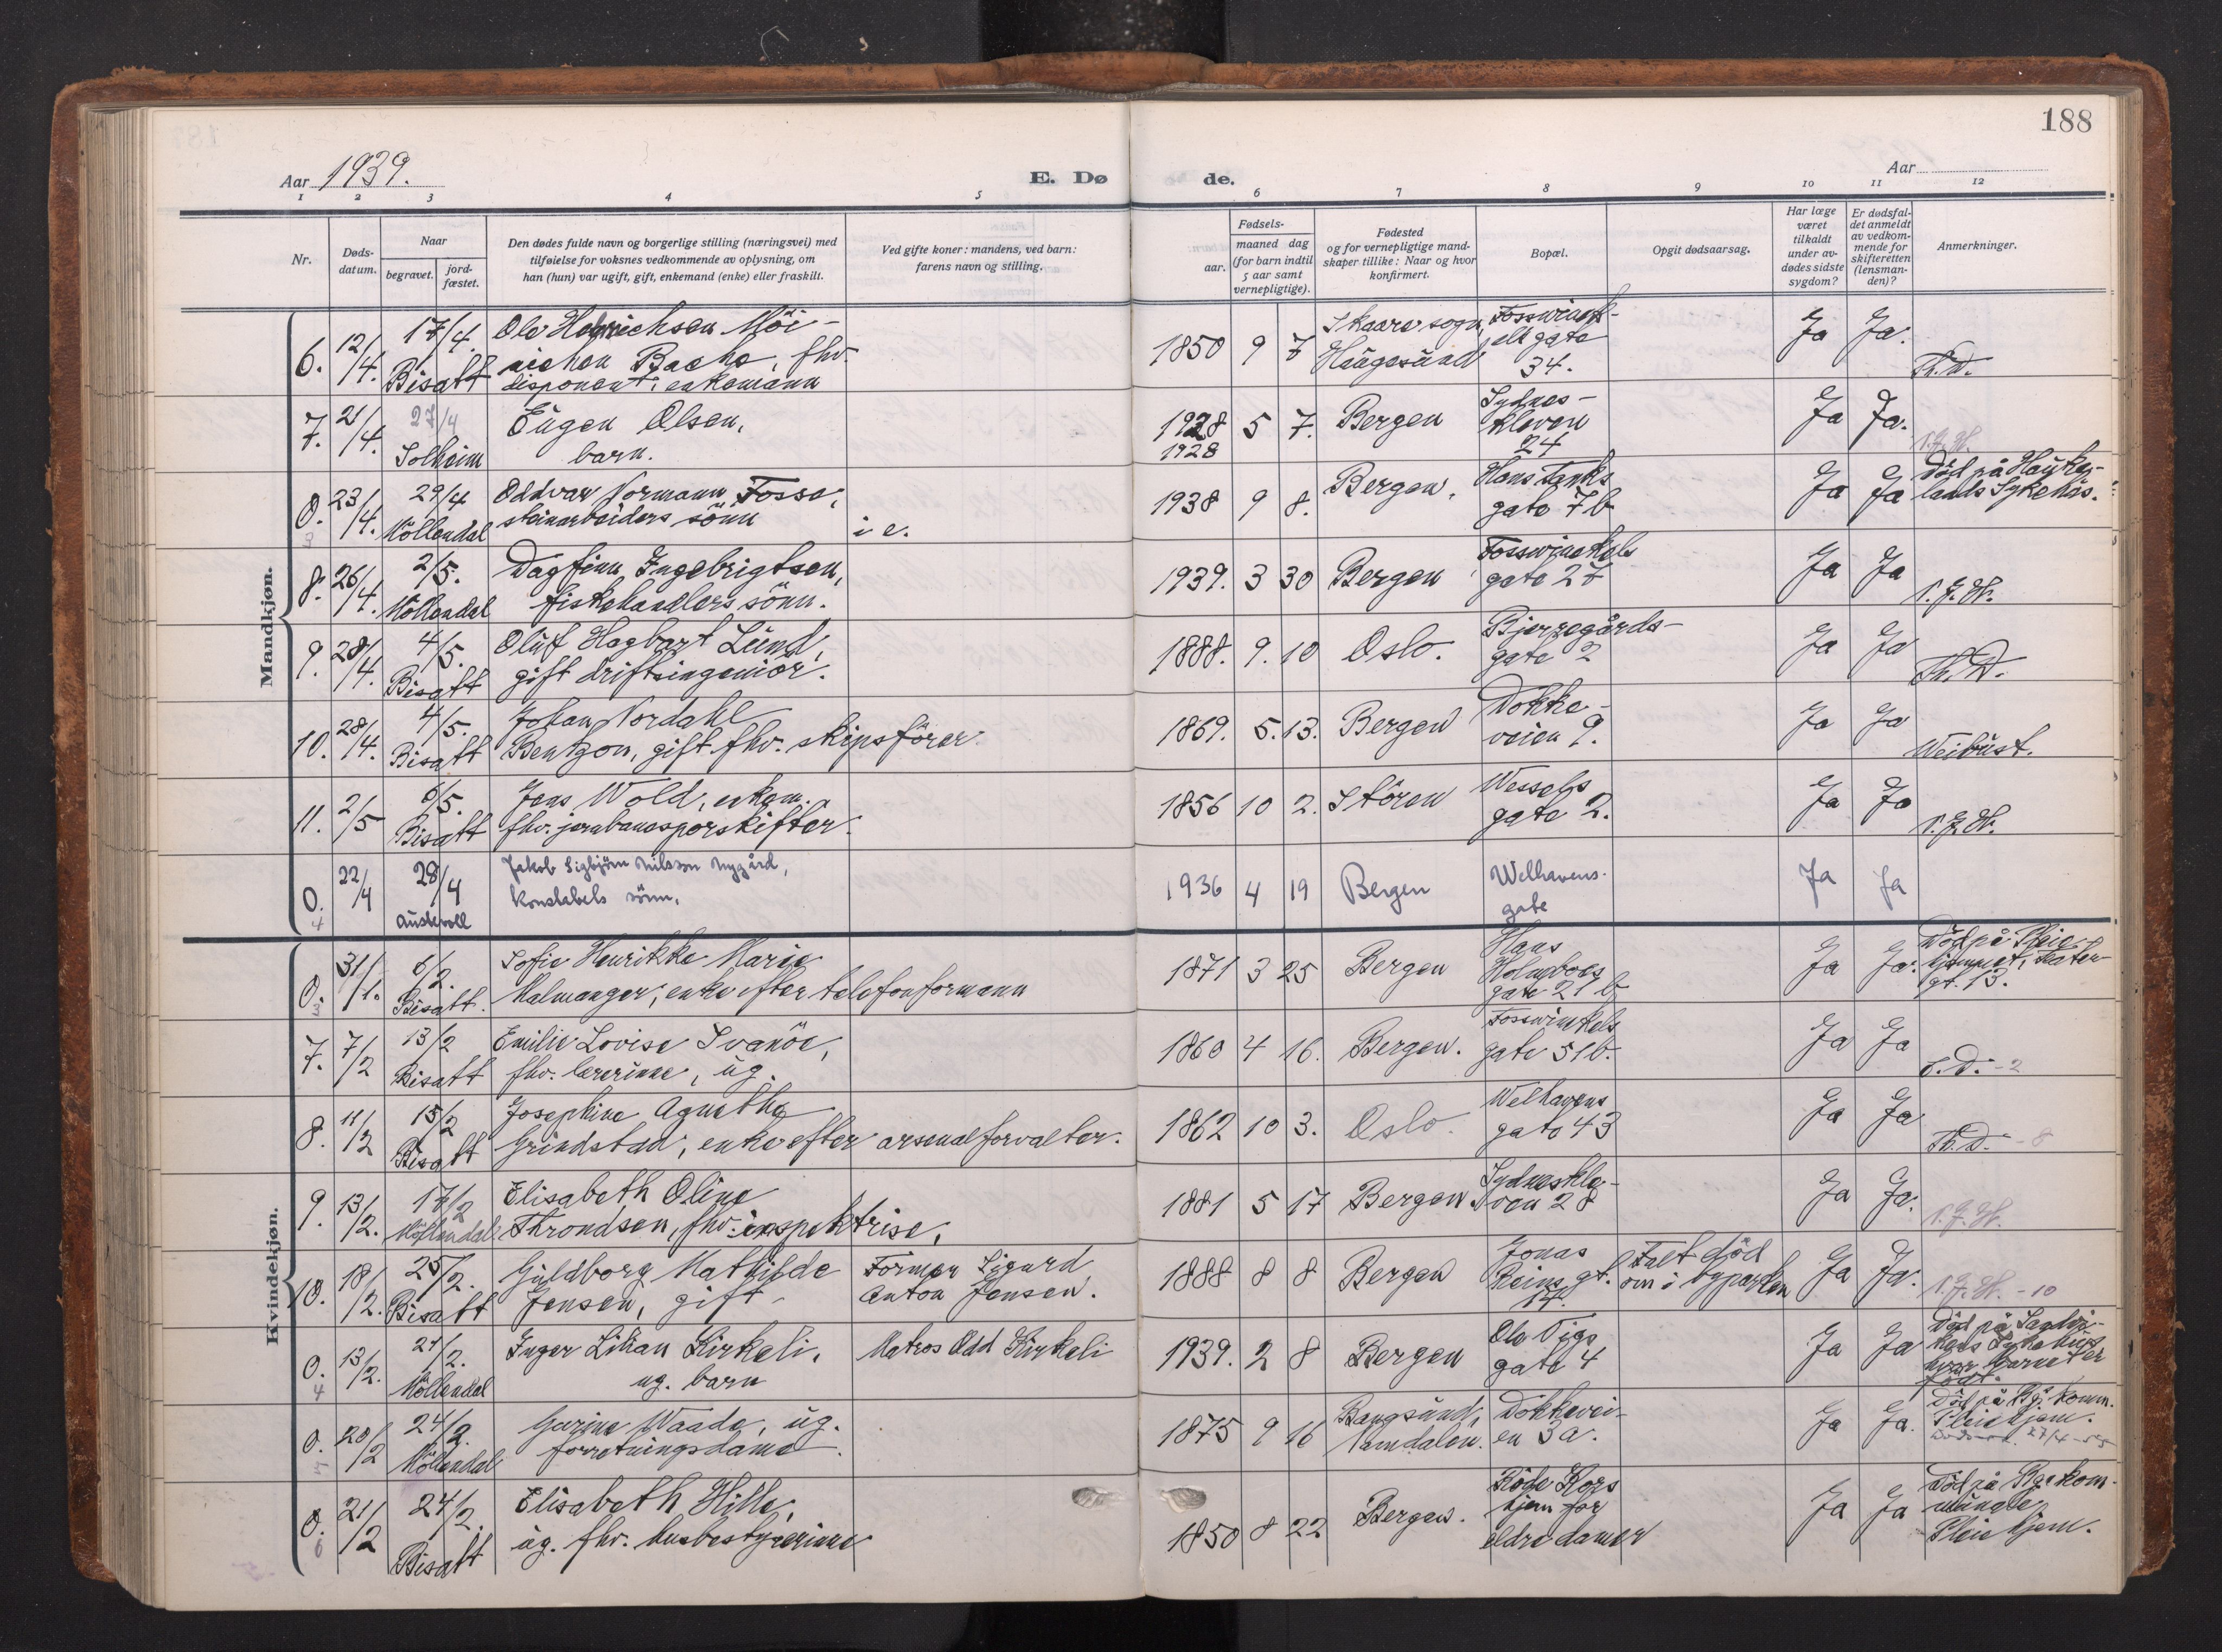 188
Aar 1939.
E. Dø
de.
Aar
1 2 3 4 5 6 7 8 9 10 11 12
Nr.
Døds-
datum.
Naar
begravet.
jord-
fæstet.
Den dødes fulde navn og borgerlige stilling (næringsvei) med
tilføielse for voksnes vedkommende av oplysning, om
han (hun) var ugift, gift, enkemand (enke) eller fraskilt.
Ved gifte koner: mandens, ved barn:
farens navn og stilling.
Fødsels-
aar.
maaned dag
(for barn indtil
5 aar samt
vernepligtige).
Fødested
og for vernepligtige mand-
skaper tillike: Naar og hvor
konfirmert.
Bopæl.
Opgit dødsaarsag.
Har læge
været
tilkaldt
under av-
dødes sidste
sygdom?
Er dødsfal-
det anmeldt
av vedkom-
mende for
skifteretten
(lensman-
den)?
Anmerkninger.
Mandkjøn.
6. 12/4. 17/4. Bisatt
Ole Möi-
nichen Bache, fhv.
disponent, enkemann
1850 9 7 Skaare sogn, Haugesund
Fosswinck-
els gate
34.
Ja Ja. Th. D.
7. 21/4. 27/4 Solheim
Eugen Olsen,
barn.
1928 5 7. Bergen
1928
Sydnes-
kleven
24
Ja Ja. P. J. H.
0. 3 23/4. 29/4 Möllendal
Oddvar Normann Fosse,
steinarbeiders sönn i e.
1938 9 8. Bergen.
Hans Tanks
gate 7 b
Ja Ja
Död på Hauke-
lands Sykehus.
8. 26/4. 2/5. Möllendal
Dagfinn Ingebrigtsen,
fiskehandlers sönn.
1939. 3 30 Bergen
Fosswinckels
gate 27
Ja Ja P. J. H.
9. 28/4. 4/5. Bisatt
Oluf Hagbart Lund,
gift driftsingeniör.
1888. 9. 10 Oslo.
Bjerregårds-
gate 2
Ja Ja Th. D.
10. 28/4. 4/5. Bisatt
Johan Nordahl
Bentzon, gift fhv. skipsförer.
1869. 5. 13. Bergen
Dokke-
veien 9.
Ja Ja Weibust.
11. 2/5 6/5. Bisatt
Jens Wold, enkem.,
fhv. jernbanesporskifter.
1856 10 2. Stören
Wessels
gate 2.
Ja Ja P. J. H.
0. 4 22/4 28/4 Austevoll
Jakob Sigbjörn Nilsson Nygård,
Konstabels sönn.
1936 4 19 Bergen
Welhavens-
gate
Ja Ja
Kvindekjøn.
0. 3 31/1. 6/2. Bisatt.
Sofie Henrikke Marie
Malmanger, enke efter telefonformann
1871 3 25 Bergen
Hans
Holmboes
gate 21 b
Ja Ja.
Död på Pleie-
hjemmet,
gt. 13.
7. 7/2 13/2 Bisatt
Emilie Lovise Svanöe,
fhv. lærerinne, ug.
1860 4 16. Bergen.
Fosswinkels
gate 51b.
Ja Ja -2
8. 11/2 15/2 Bisatt
Josephine Agnethe
Grindstad, enke efter arsenalforvalter.
1862 10 3. Oslo.
Welhavens
gate 43
Ja Ja Th. D. -8
9. 13/2. 17/2 Möllendal
Elisabeth Oline
Throndsen, fhv. inspektrise,
1881 5 17 Bergen.
Sydneskle-
ven 28
Ja Ja. P. J. H.
10. 18/2. 25/2. Bisatt
Guldborg Mathilde
Jensen, gift
Former Sigurd
Anton Jensen.
1888 8 8 Bergen
Jonas
Reins gt.
14.
Falt död
om i byparken
Ja Ja. P. J. H. -10
0. 4 13/2. 21/2. Möllendal
Inger Lilian Kirkeli.
ug. barn
Matros Odd Kirkeli
1939. 2 8 Bergen
Ole Vigs
gate 4
Ja Ja
Död på Sandvi-
kens Sykehus
hvor barnet er
född.
0. 5 20/2 24/2. Möllendal
Gurine Waade, ug.
forretningsdame.
1875 9 16
Bangsund,
Namdalen.
Dokkevei-
en 3a.
Ja Ja.
Död på Bg. komm.
Pleiehjem.
27/4-55
0. 6 21/2 24/2. Bisatt
Elisabeth Hille,
ug. fhv. husbestyrerinne
1850 8 22 Bergen.
Röde Kors
hjem for
eldre damer
Ja Ja
Död på Bge kom-
munale
Pleiehjem.